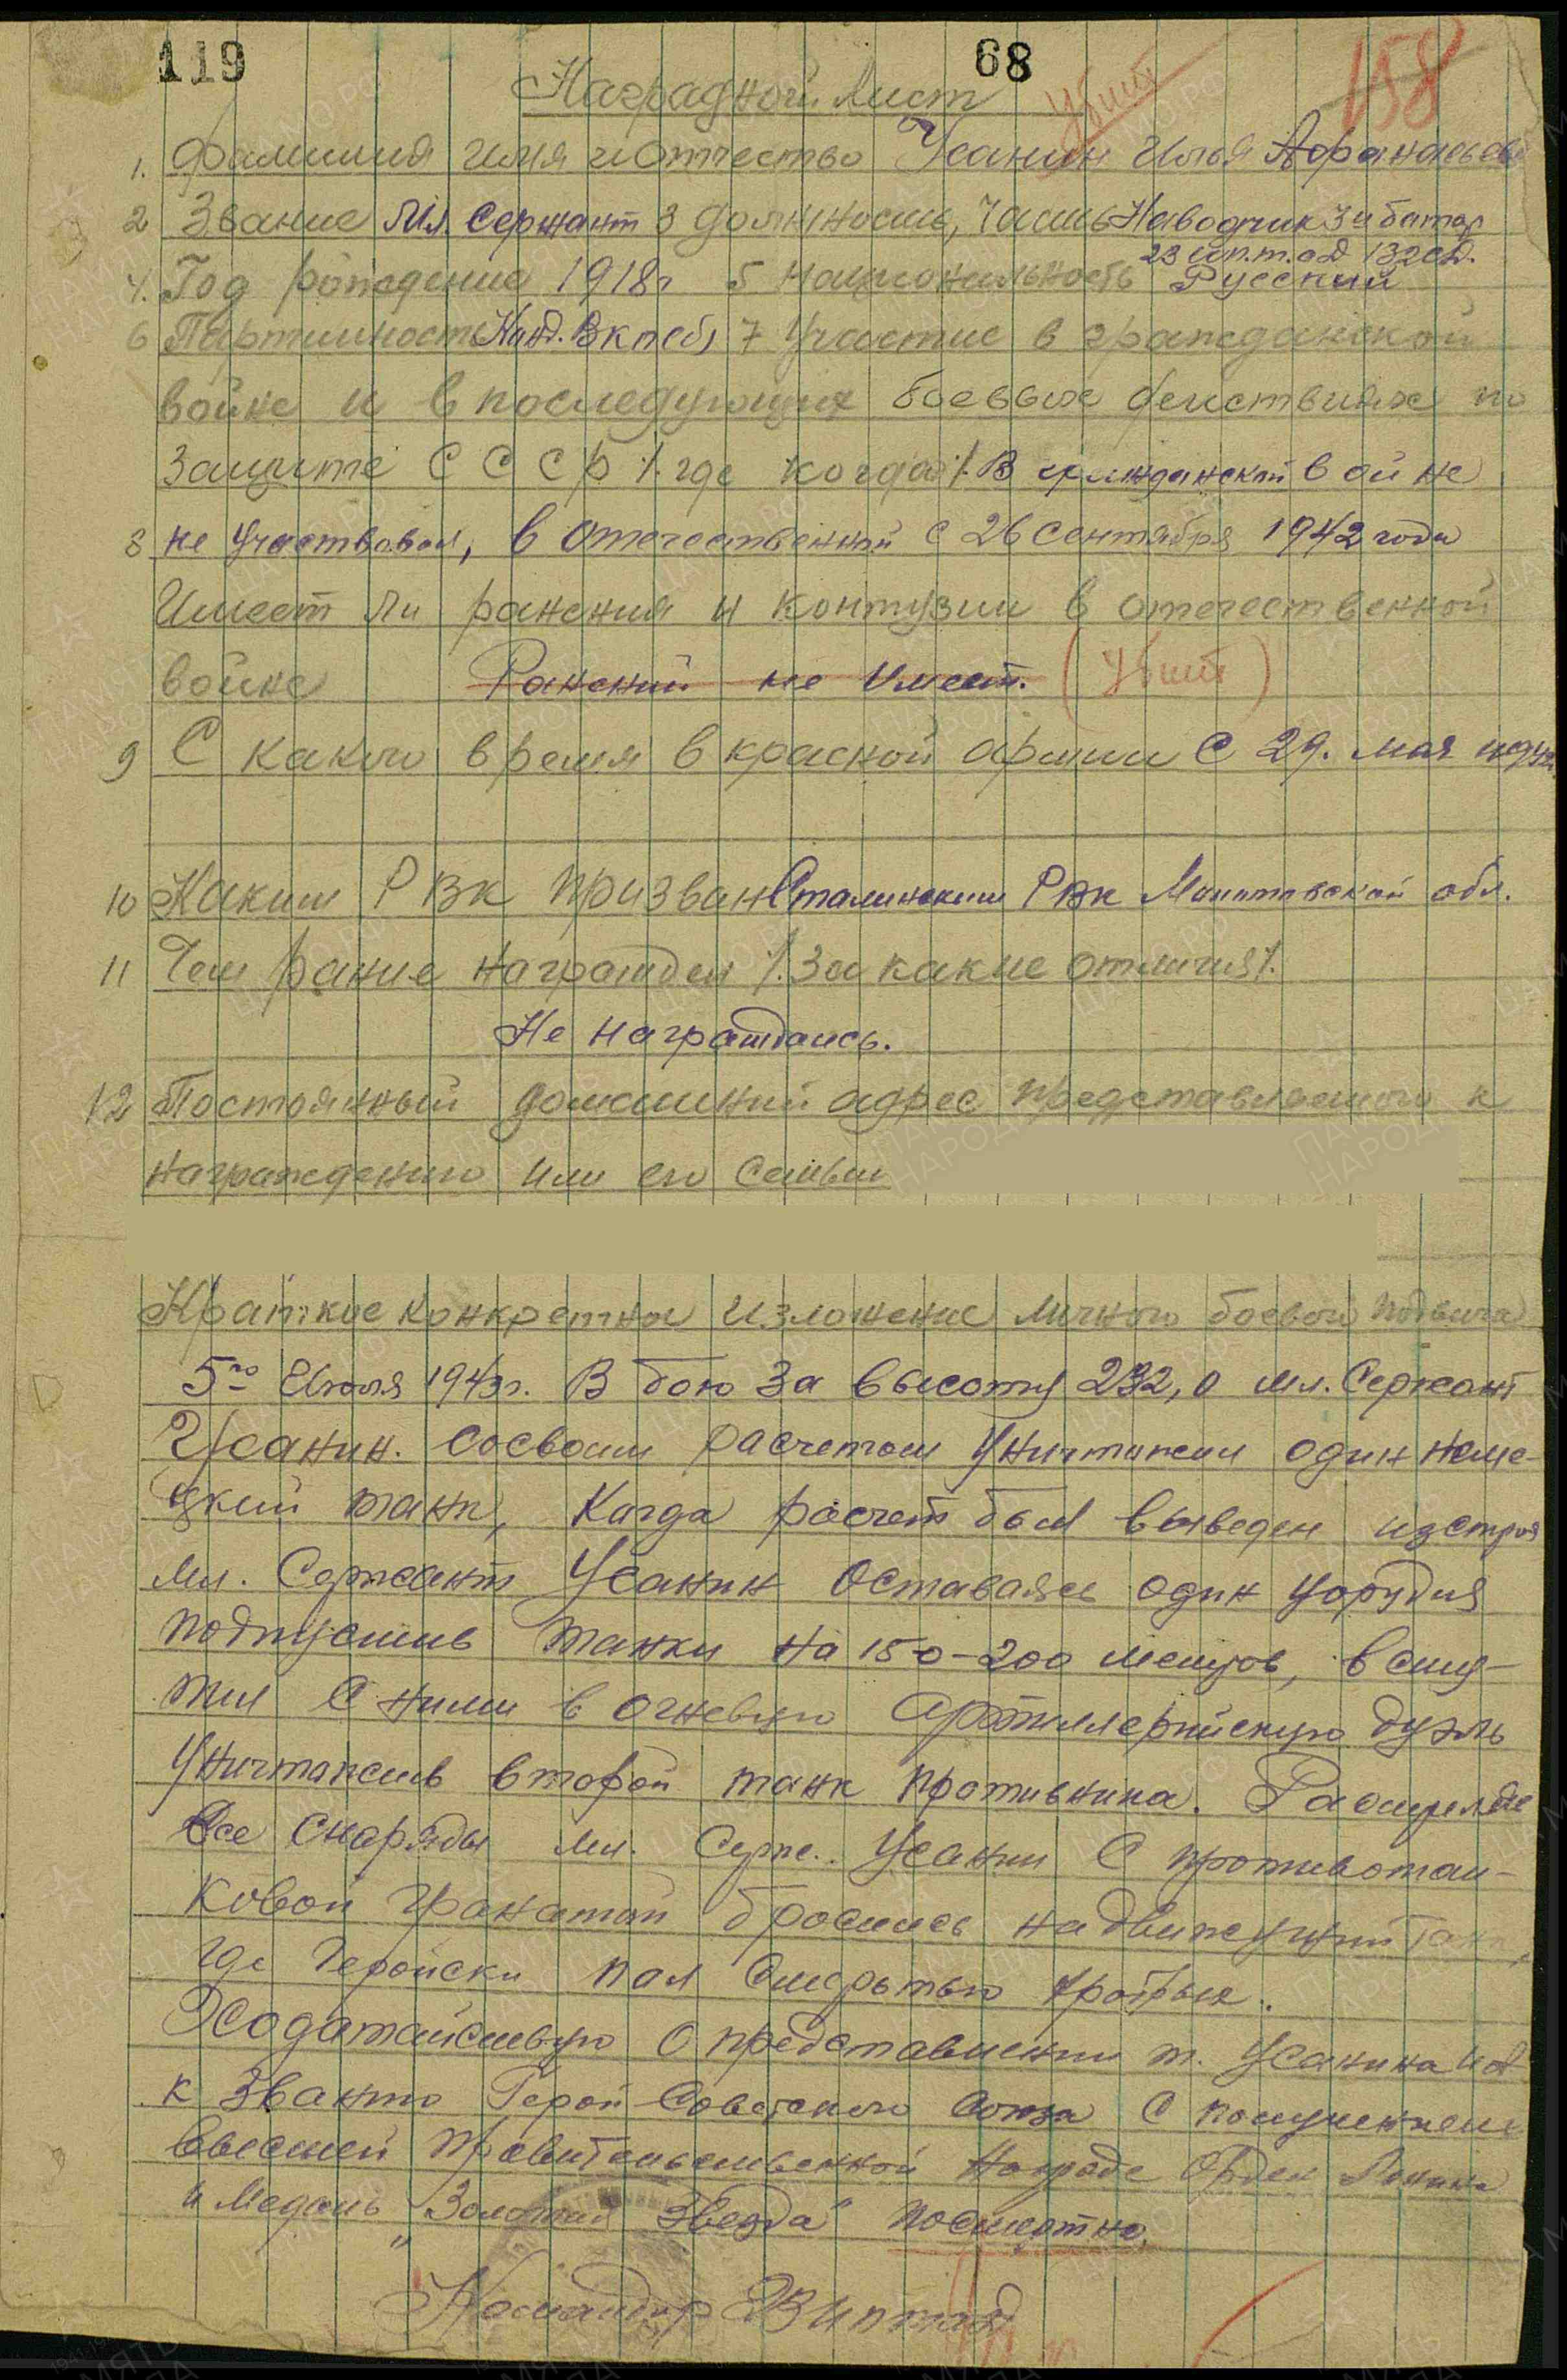 119 68 158
Наградной Лист убит
1. Фамилия имя и отчество Усанин Илья Афанасьев
2 Звание Мл. Сержант 3 должность, часть Наводчик 3й батар
23 ип.т.од 132 сд.
4. Год рождение 1918г 5 Национальность Русский
6 Партийность Канд. ВКП(б) 7 Участие в гражданской
войне и в последующих боевых действиях по
защите С С С Р /. где когда /. В гражданской войне
8 не участвовал, в отечественной с 26 сентября 1942 года
Имеет ли ранения и контузии в отечественной
войне Ранений не имеет. (убит)
9 С каково время в красной армии С 29. мая
10 Каким РВК призван Сталинским РВК обл.
11 Чем ранее награжден /. За какие отличия /.
Не награждались.
12 Постоянный домашний адрес представляемого к
награждению или его семьи
Краткие конкретное изложение личного боевого подвига
5го Июля 1943г. В бою за высоту 232,0 мл. Сержант
Усанин. со своим расчетом уничтожил один неме-
цкий танк, Когда расчет был выведен из строя
мл. Сержант Усанин Оставаясь один у орудия
подпустив танки на 150-200 метров, всту-
пил с ними в огневую артиллерийскую дуэль
уничтожив второй танк противника.
Все снаряды мл. Серж. Усанин С противотан-
ковой гранатой бросились на движущий танк,
где Геройски пал смертью храбрых.
Ходатайствую о представлении т. Усанина
к званию Герой Советского Союза с
высшей правительственной награде Орден Ленина
и Медаль „Золотая Звезда" посмертно.
Командир ЗВ иптад